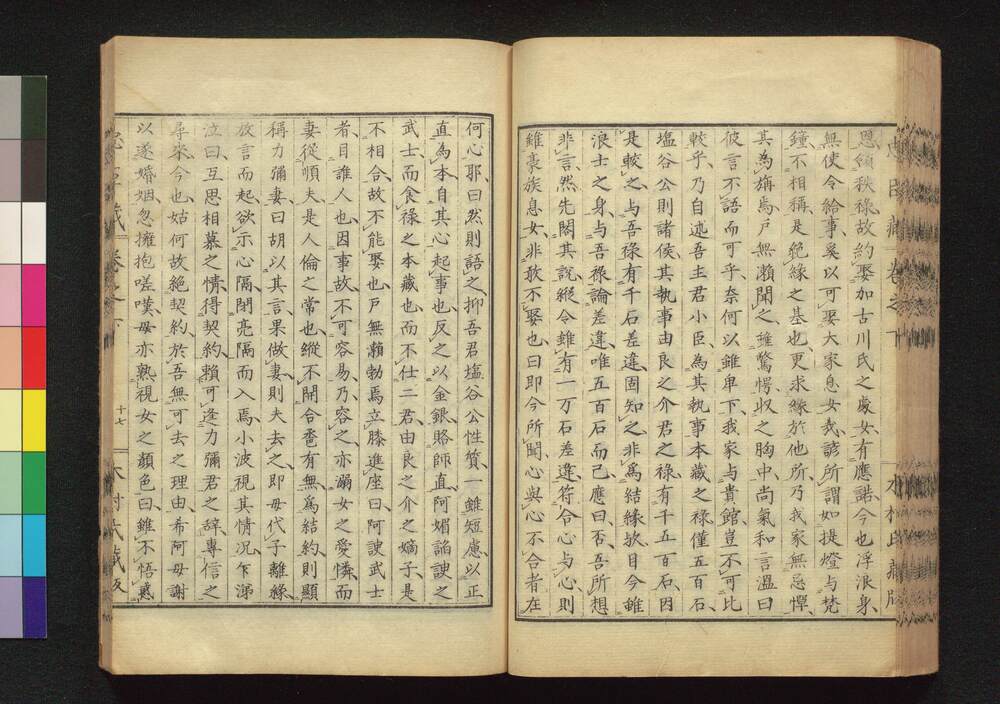 恩顧秩祿故約娶加古川氏之處女有應諾今也浮浪身
無使令給事奚以可娶大家息女哉諺所謂如提燈与梵
鐘不相稱是絶緣之基也更求緣於他所乃我家無忌憚
其為旃焉戸無瀬聞之雖驚愕収之胸中尚氣和言温曰
彼言不語而可乎奈何以雖卑下我家与貴館豈不可比
較乎乃自述吾主君小臣為其執事本藏之祿僅五百石
塩谷公則諸侯其執事由良之介君之祿有千五百石因
是較之与吾祿有千石差違固知之非為結緣欤目今雖
浪士之身与吾祿論差違唯五百石而已應曰否吾所想
非言然先閣其說縱令雖有一万石差違符合心与心則
雖豪族息女非敢不娶也曰即今所聞心與心不合者在
何心耶曰然則語之抑吾君塩谷公性質一雖短慮以正
直為本自其心起事也反之以金銀賂師直阿媚諂諛之
武士而食祿之本藏也而不仕二君由良之介之嫡子是
不相合故不能娶也戸無瀬勃焉立膝進座曰阿諛武士
者目誰人也因事故不可容易乃容之亦溺女之愛憐而
妻從順夫是人倫之常也縱不開合卺有無爲結約則顯
稱力彌妻曰胡以其言果做妻則夫去之即毋代子離緣
放言而起欲示心隔閉亮隔而入焉小波視其情况乍涕
泣曰互思相慕之情得契約賴可逢力彌君之辞專信之
尋來今也姑何故絶契約於吾無可去之理由希阿毋謝
以遂婚姻忽擁抱嗟嘆毋亦熟視女之顏色曰雖不悟惑
藏 卷之下
十七